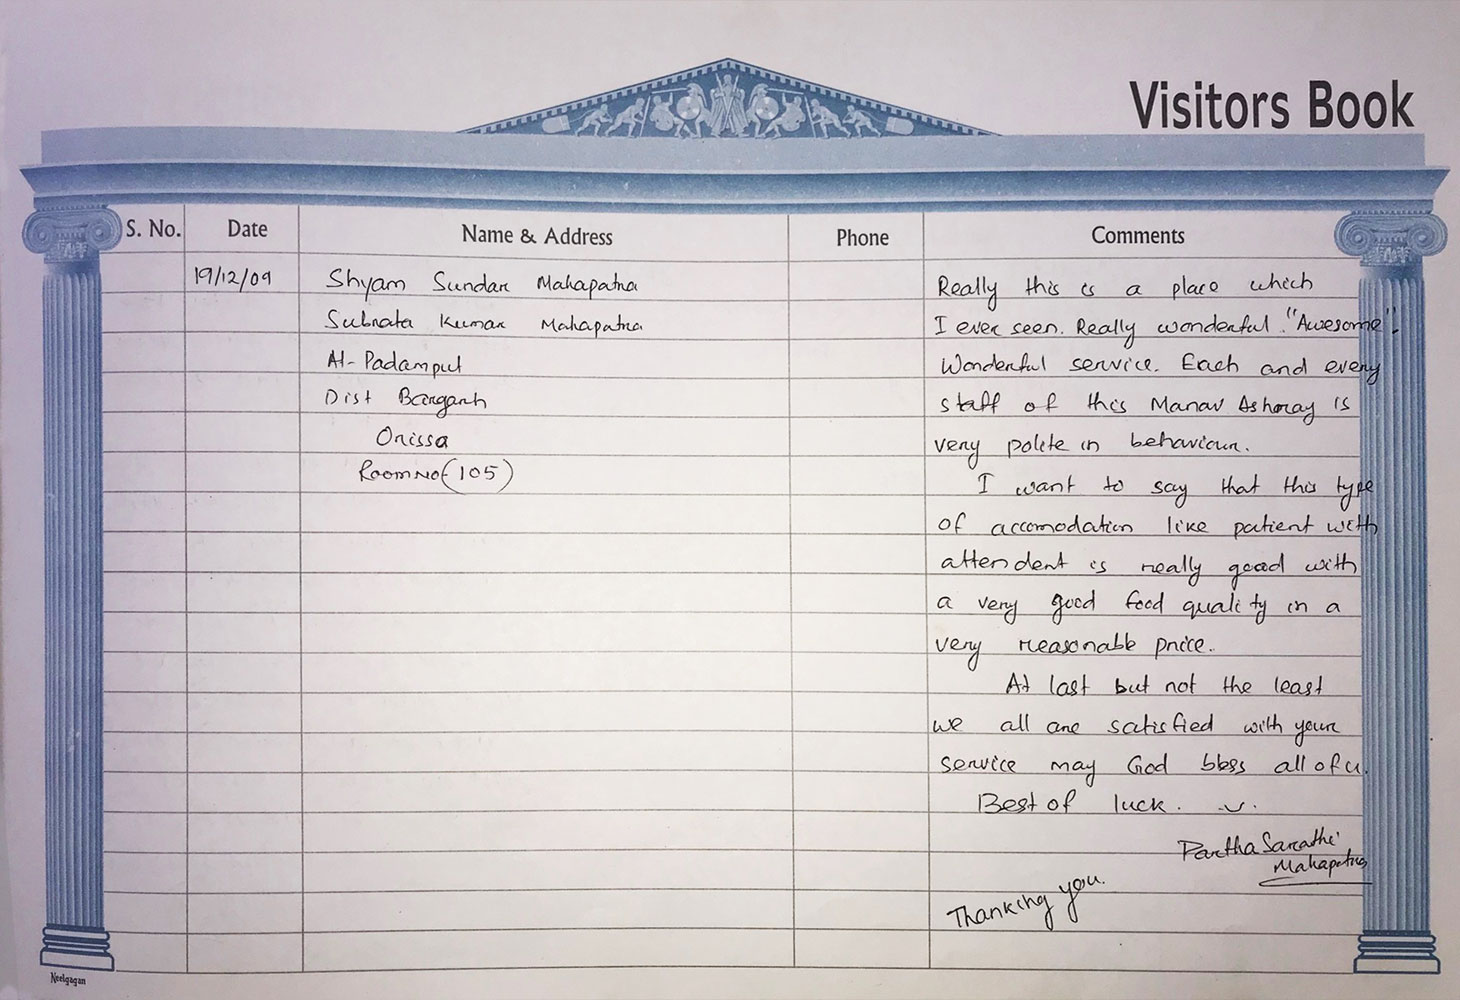 Visitors Book
S. No. Date Name & Address Phone Comments
19/12/09 Shyam Sundar Mahapatra
Subrata Kumar Mahapatra
At-Padampur
Dist Bargarh
Orissa
Room No (105)
Really this is a place which
I ever seen. Really wonderful. "Awesome".
Wonderful service. Each and every
staff of this Manav Ashray is
very polite in behaviour.
I want to say that this type
of accomodation like patient with
attendent is really good with
a very good food quality in a
very reasonable price.
At last but not the least
we all are satisfied with your
service may God bless all of u.
Best of luck.
Partha Sarathi
Mahapatra
Thanking you.
Neelgagan